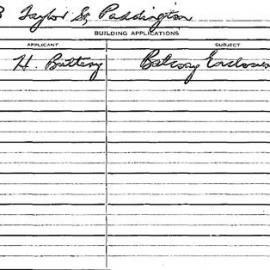 3 Taylor Sq Paddington
BUILDING APPLICATIONS
APPLICANT SUBJECT
H. Buttery Balcony Enclosure